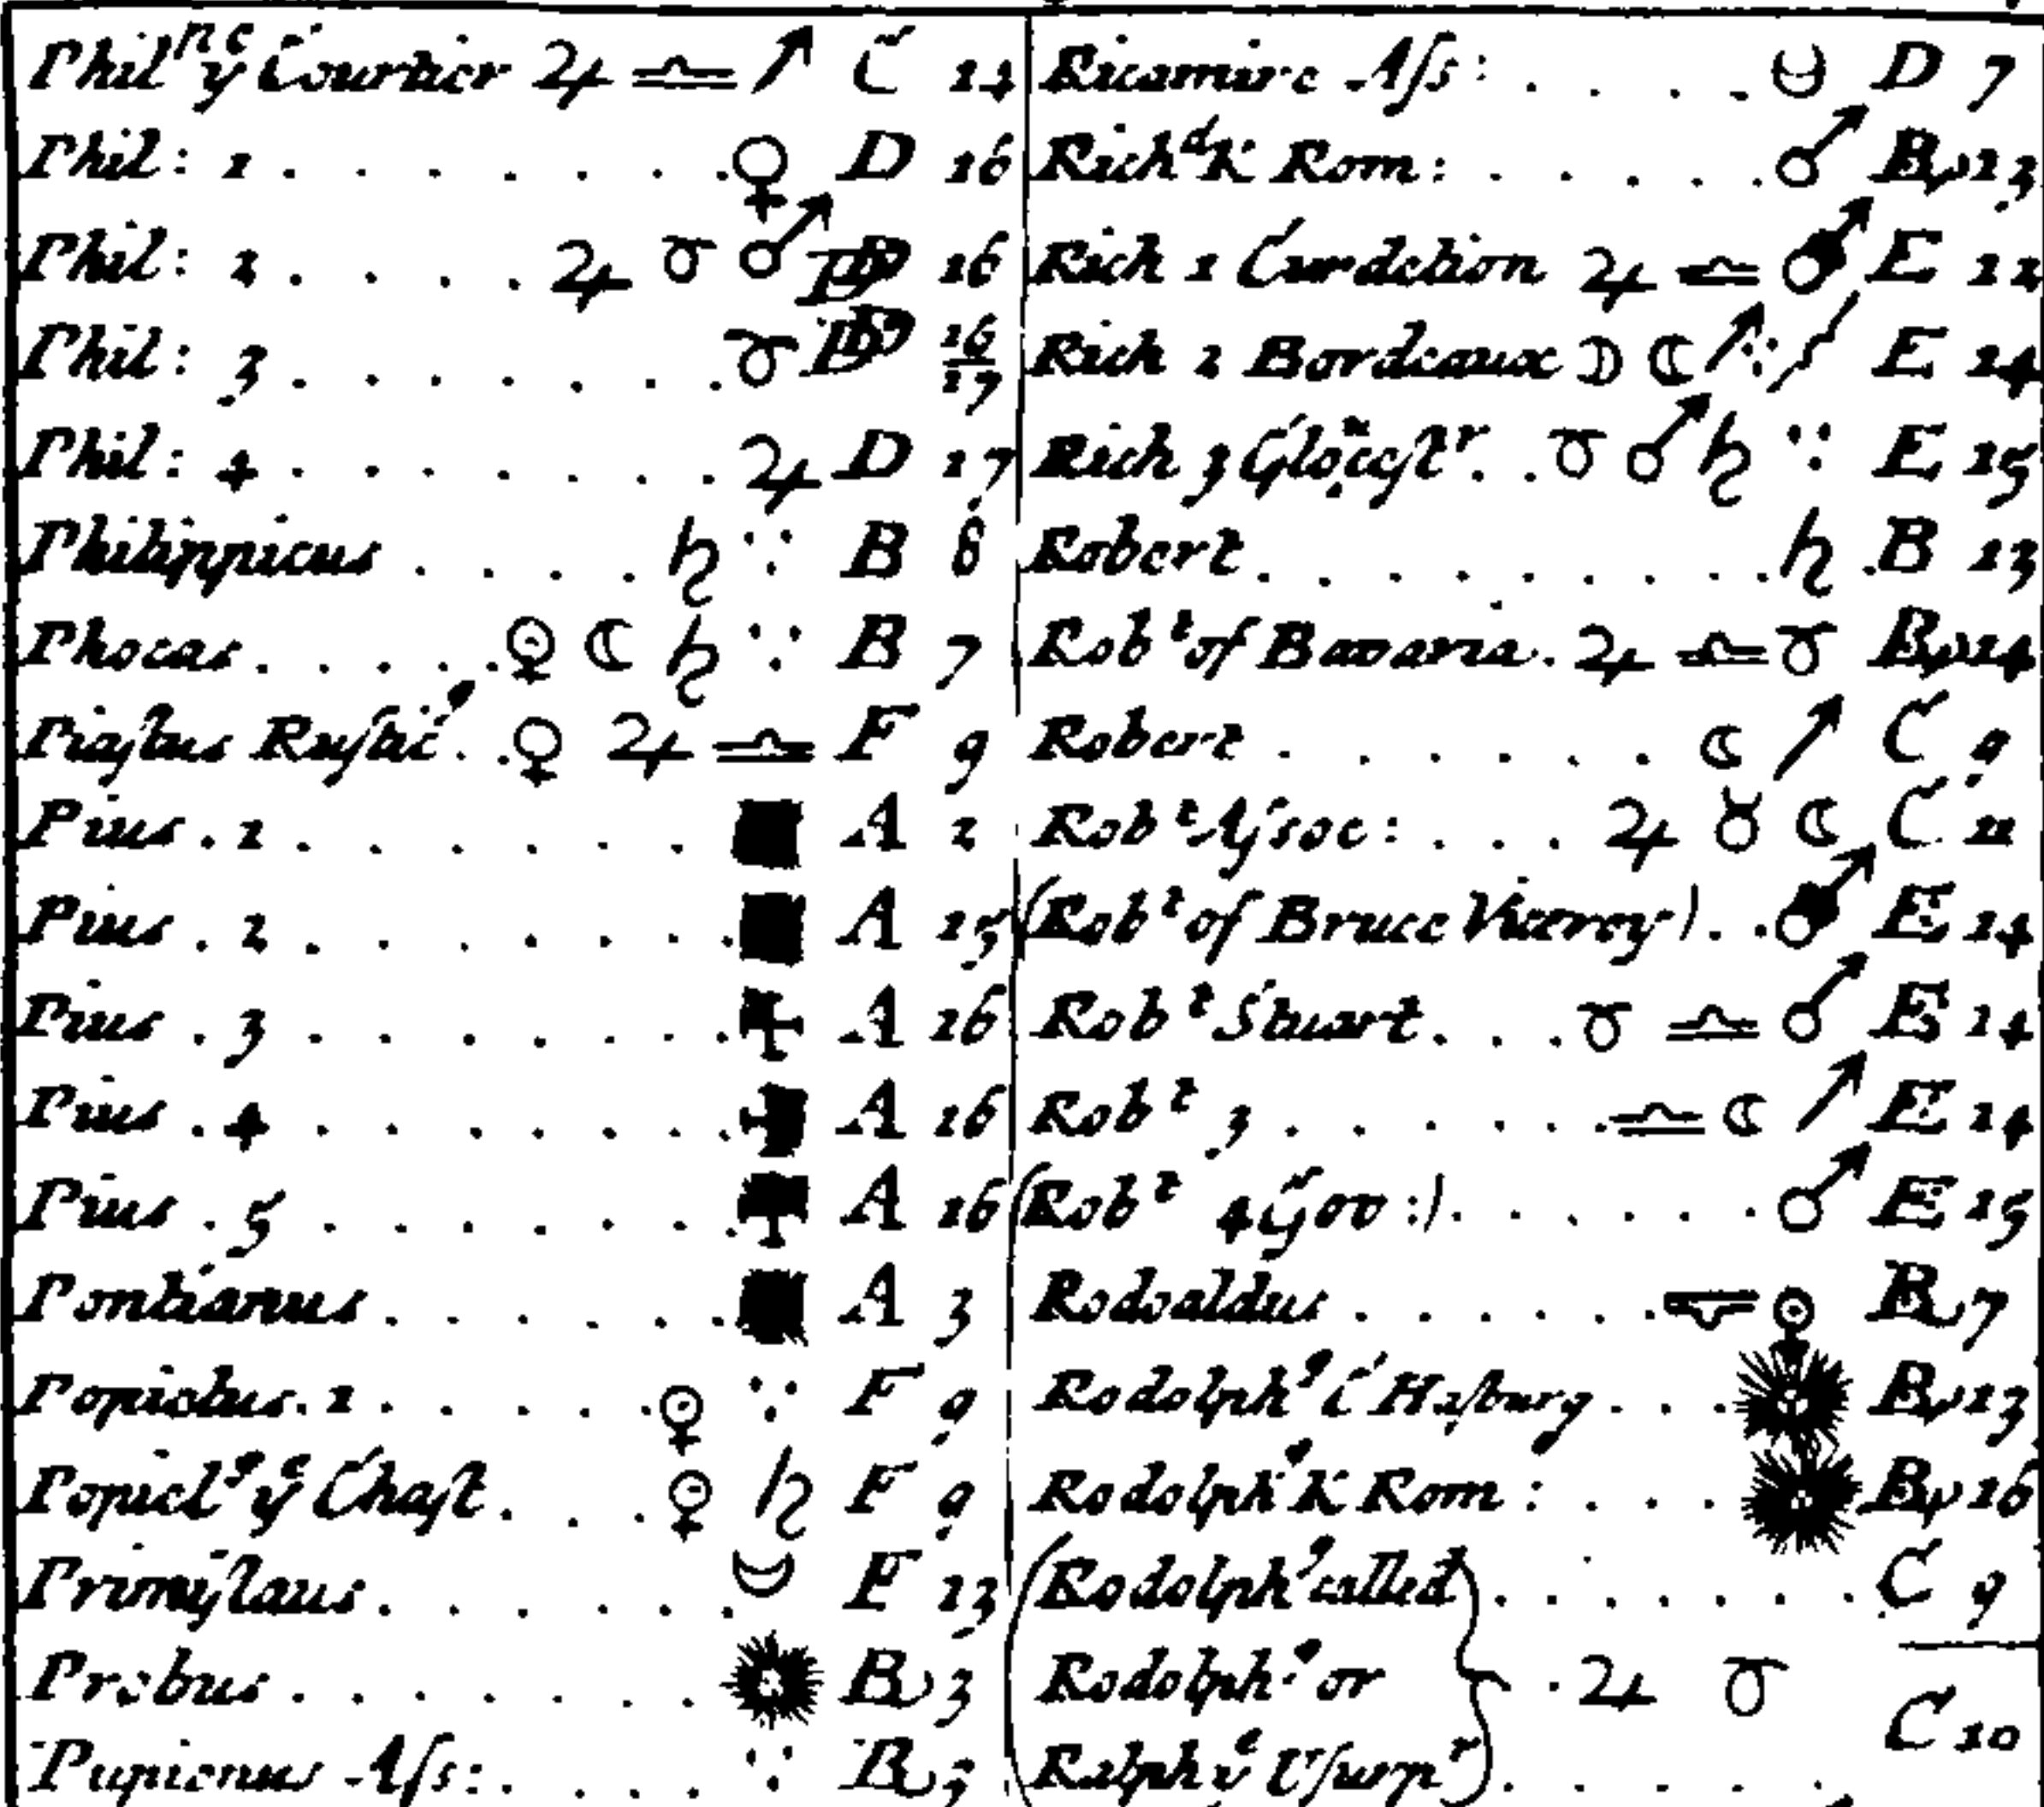 Philpe ye Courtier ♃ ♎ ↗ C 14
Phil: 1 ♀ D 16
Phil: 2 ♃ ♉ ♂ 16
Phil: 3 ♉ 16/17
Phil: 4 ♃ D 17
Philippicus ♄ ∵ B 8
Phocas ☾ ♄ ∵ B 7
Piastus Rustic ♀ ♃ ♎ F 9
Pius . 1 ■ A 2
Pius . 2 ■ A 15
Pius . 3 A 16
Pius . 4 A 16
Pius . 5 A 16
Pontianus ■ A 3
Popielus . 1 ∵ F 9
Popiel9 ye Chast ♄ F 9
Primislaus F 13
Probus B 3
Pupienus Ass: ∵ B 3
Ricimire Ass: D 7
Richd K Rom: ♂ B 13
Rich 1 Curdelion ♃ ♎ ♂ E 12
Rich 2 Bordeaux ☽ ☾ ↗ ∵ E 14
Rich 3 Glocestr ♉ ♂ ♄ ∵ E 15
Robert ♄ B 13
Robt of Bavaria ♃ ♎ ♉ B 14
Robert ☾ ↗ C 9
Robt Assoc: ♃ ☿ ☾ C 11
(Robt of Bruce Viceroy) ♂ E 14
Robt Stuart ♉ ♎ ♂ E 14
Robt 3 ♎ ☾ ↗ E 14
(Robt 4 Gov:) ♂ E 15
Rodoaldus B 7
Rodolph9 C Hasburg B 13
Rodolph9 K Rom: B 16
(Rodolph9 called C 9
Rodolph9 or ♃ ♉ C 10
Ralph ye Usurpr)